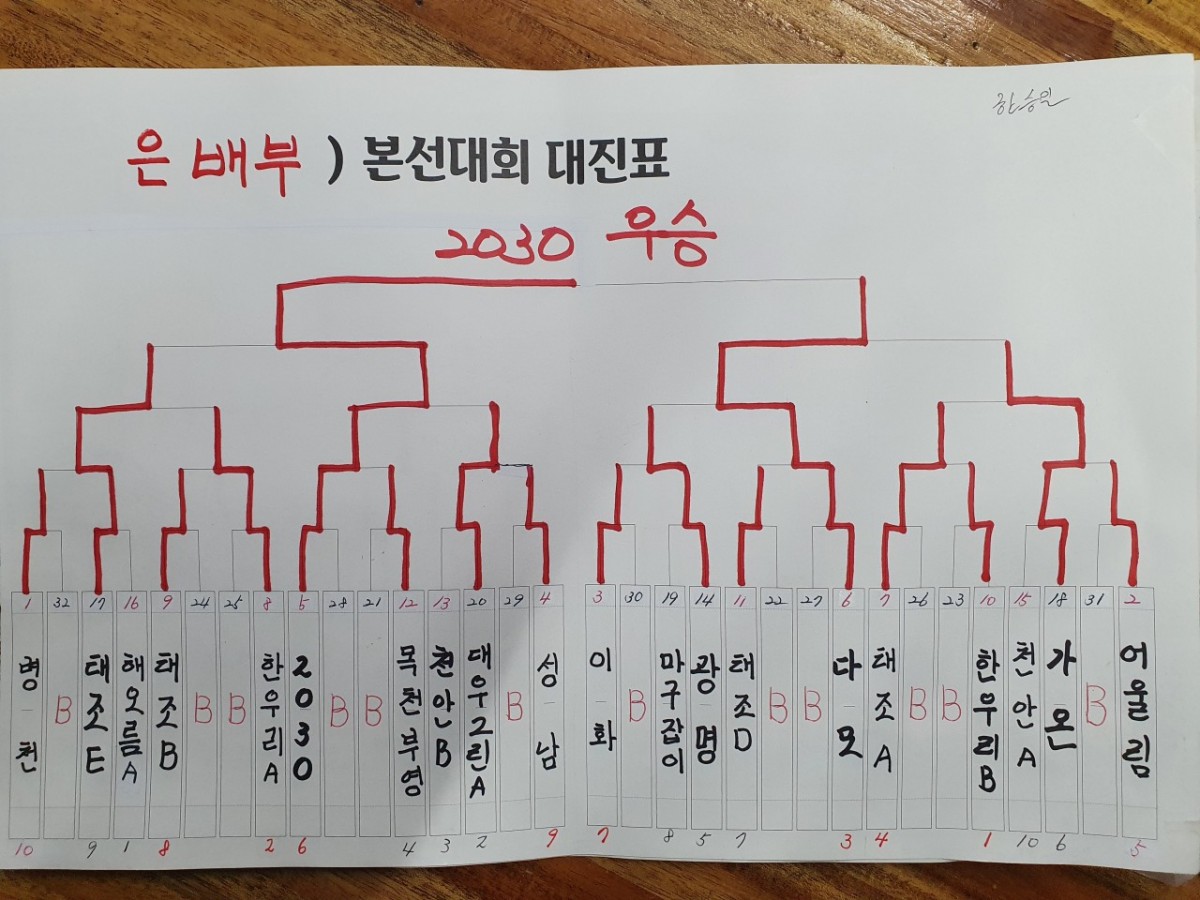 한승일
은 배부 ) 본선대회 대진표
2030 우승
1 32 17 16 9 24 25 8 5 28 21 12 13 20 29 4 3 30 19 14 11 22 27 6 7 26 23 10 15 18 31 2
병천 B 태조E 해오름A 태조B B B 한우리A 2030 B B 목천부영 천안B 대우그린A B 성남 이화 B 마구잡이 광명 태조D B B 다모 태조A B B 한우리B 천안A 가온 B 어울림
10 9 1 8 2 6 4 3 2 9 7 8 5 7 3 4 1 10 6 5